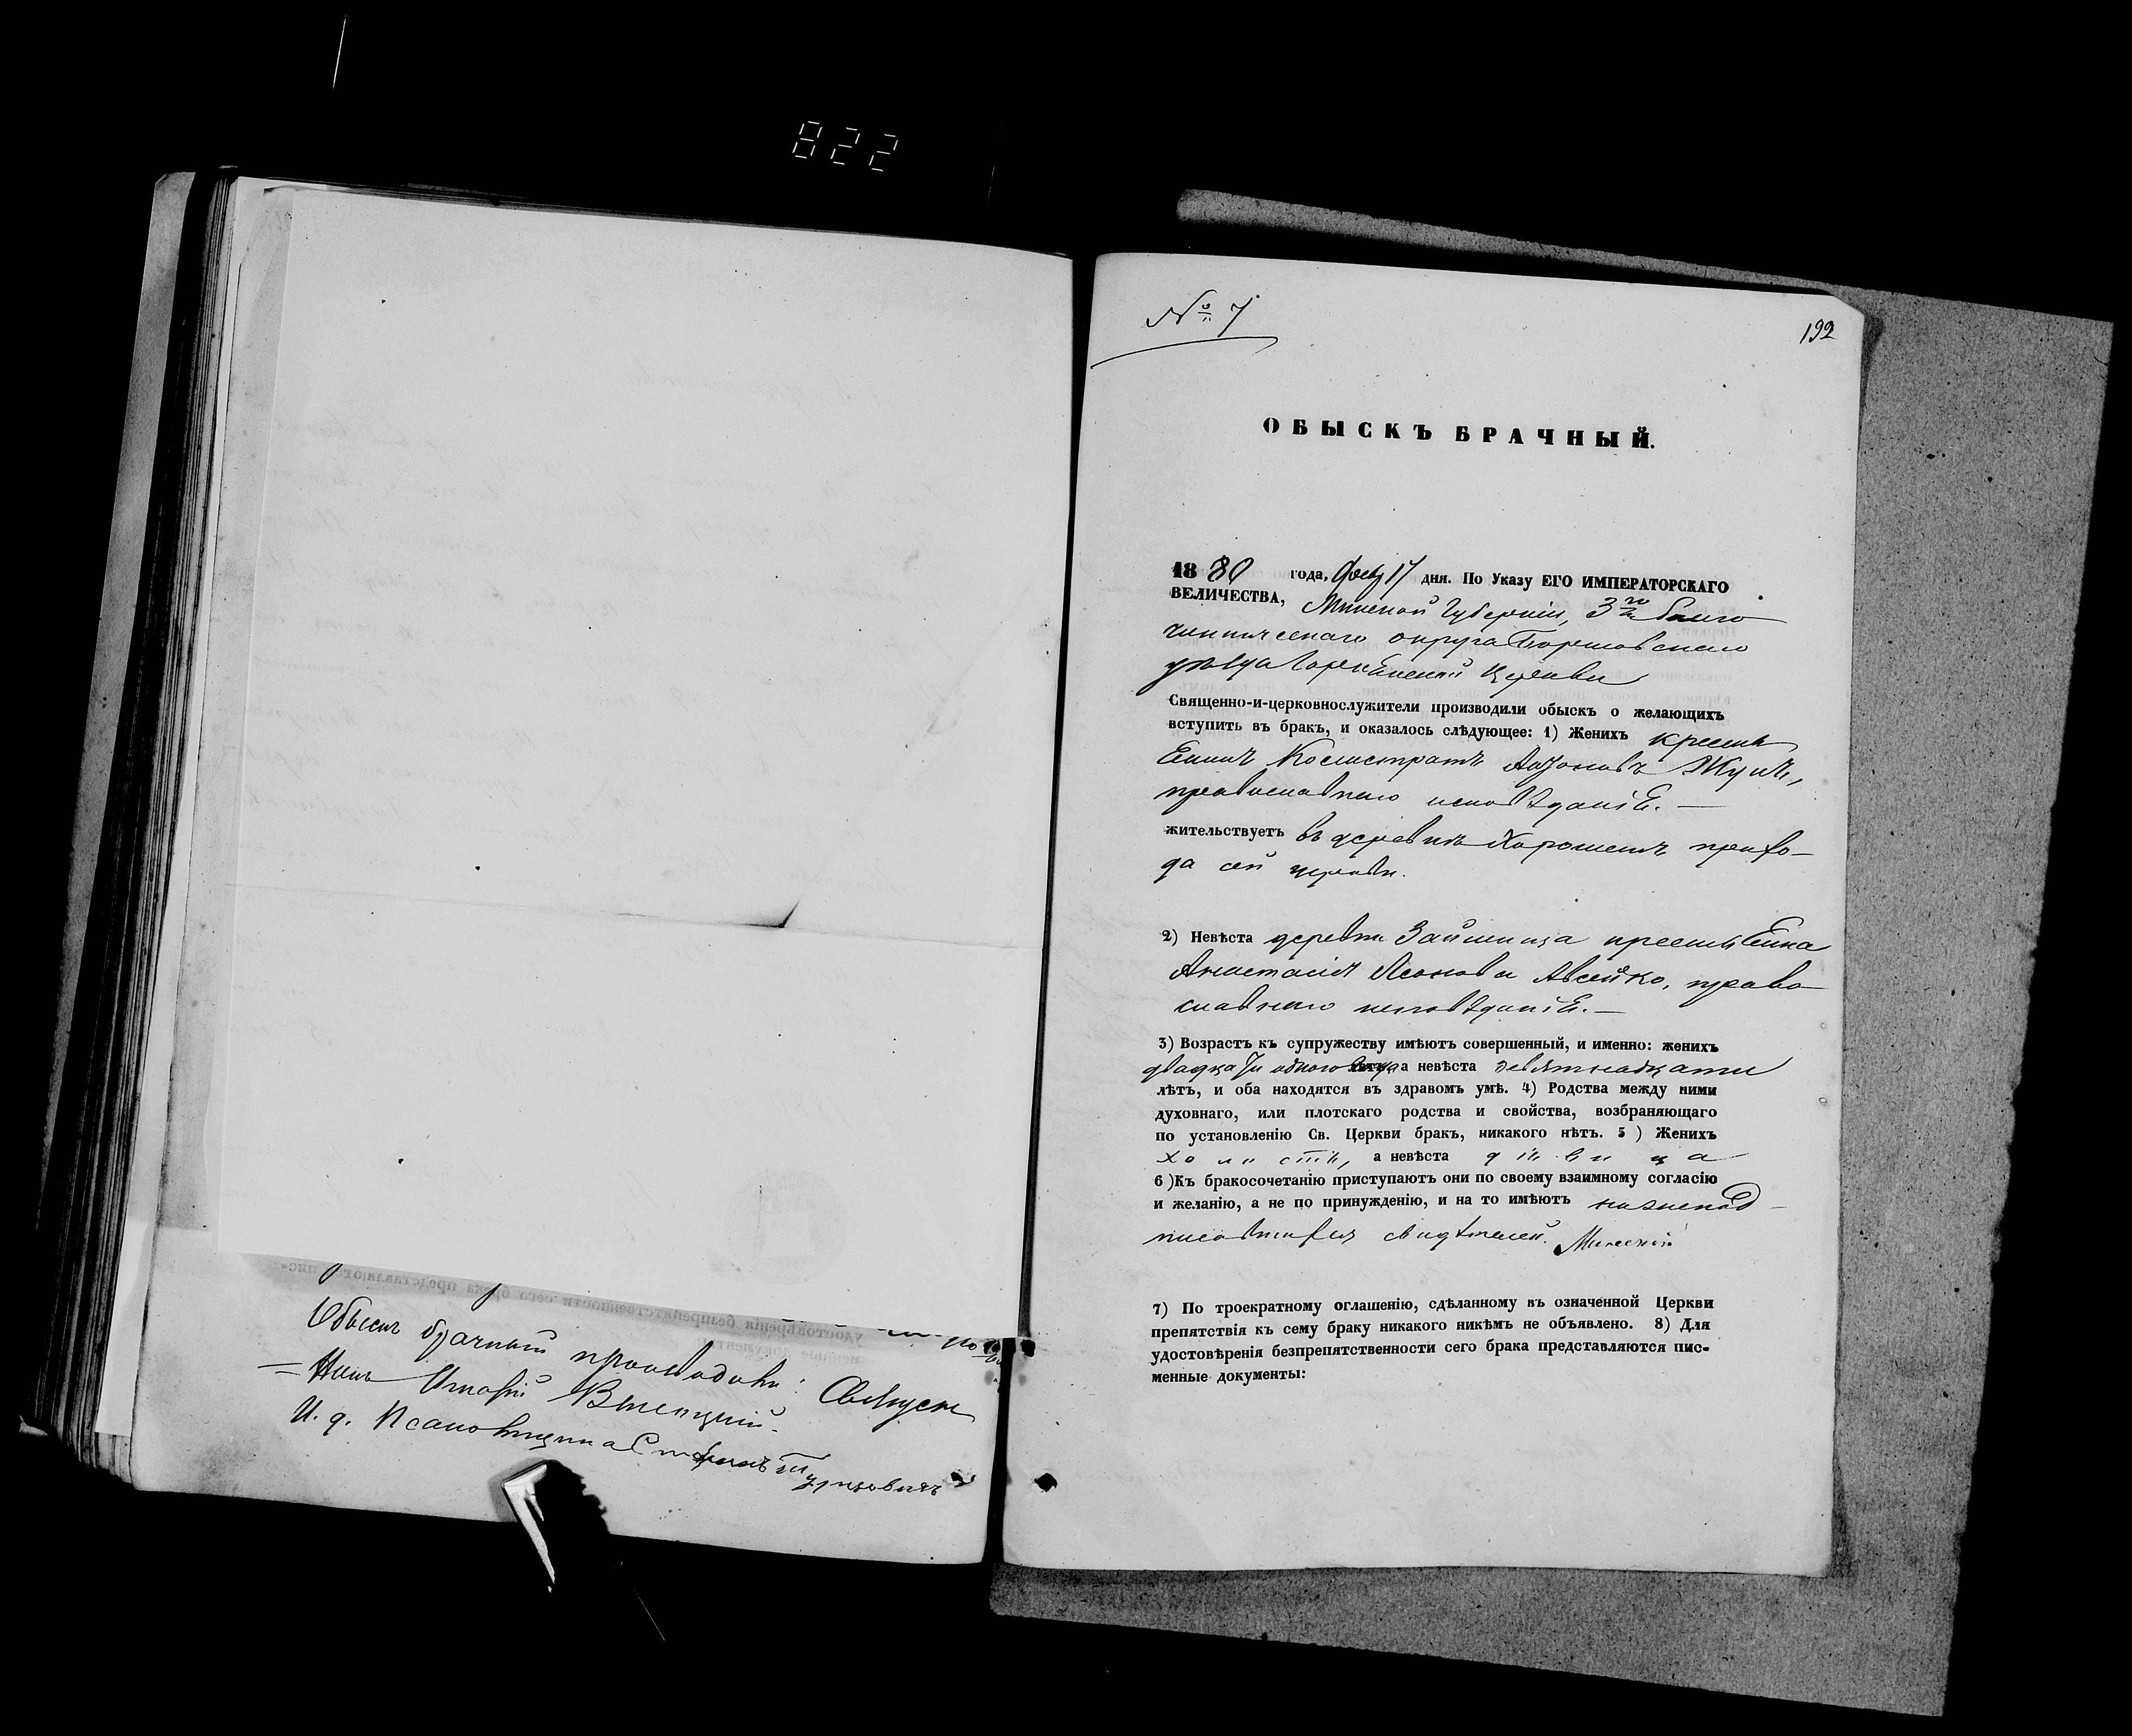 822
Обыскъ брачный производили: Священ
= никъ Игнатій
И. д. Псаломщика Стефанъ
№ 7
192
ОБЫСКЪ БРАЧНЫЙ.
1880 года, Февр 17 дня. По Указу ЕГО ИМПЕРАТОРСКАГО
ВЕЛИЧЕСТВА, Минской Губерніи, 3го благо
чинническаго округа Борисовскаго
уѣзда церкви
Священно-и-церковнослужители производили обыскъ о желающихъ
вступить въ бракъ, и оказалось слѣдующее: 1) Женихъ крестья
нинъ Калистратъ Жукъ,
православнаго исповѣданія. —
жительствуетъ въ деревнѣ прихо-
да сей церкви.
2) Невѣста деревни крестьянка
Анастасія Авсейко, право
славнаго исповѣданія. —
3) Возрастъ къ супружеству имѣютъ совершенный, и именно: женихъ
двадцати одного года а невѣста девятнадцати
лѣтъ, и оба находятся въ здравомъ умѣ. 4) Родства между ними
духовнаго, или плотскаго родства и свойства, возбраняющаго
по установленію Св. Церкви бракъ, никакого нѣтъ. 5 ) Женихъ
холостъ, а невѣста дѣвица
6 )Къ бракосочетанію приступаютъ они по своему взаимному согласію
и желанію, а не по принужденію, и на то имѣютъ нижепод-
писавшихся свидѣтелей.
7) По троекратному оглашенію, сдѣланному въ означенной Церкви
препятствія къ сему браку никакого никѣмъ не объявлено. 8) Для
удостовѣренія безпрепятственности сего брака представляются пис-
менные документы: